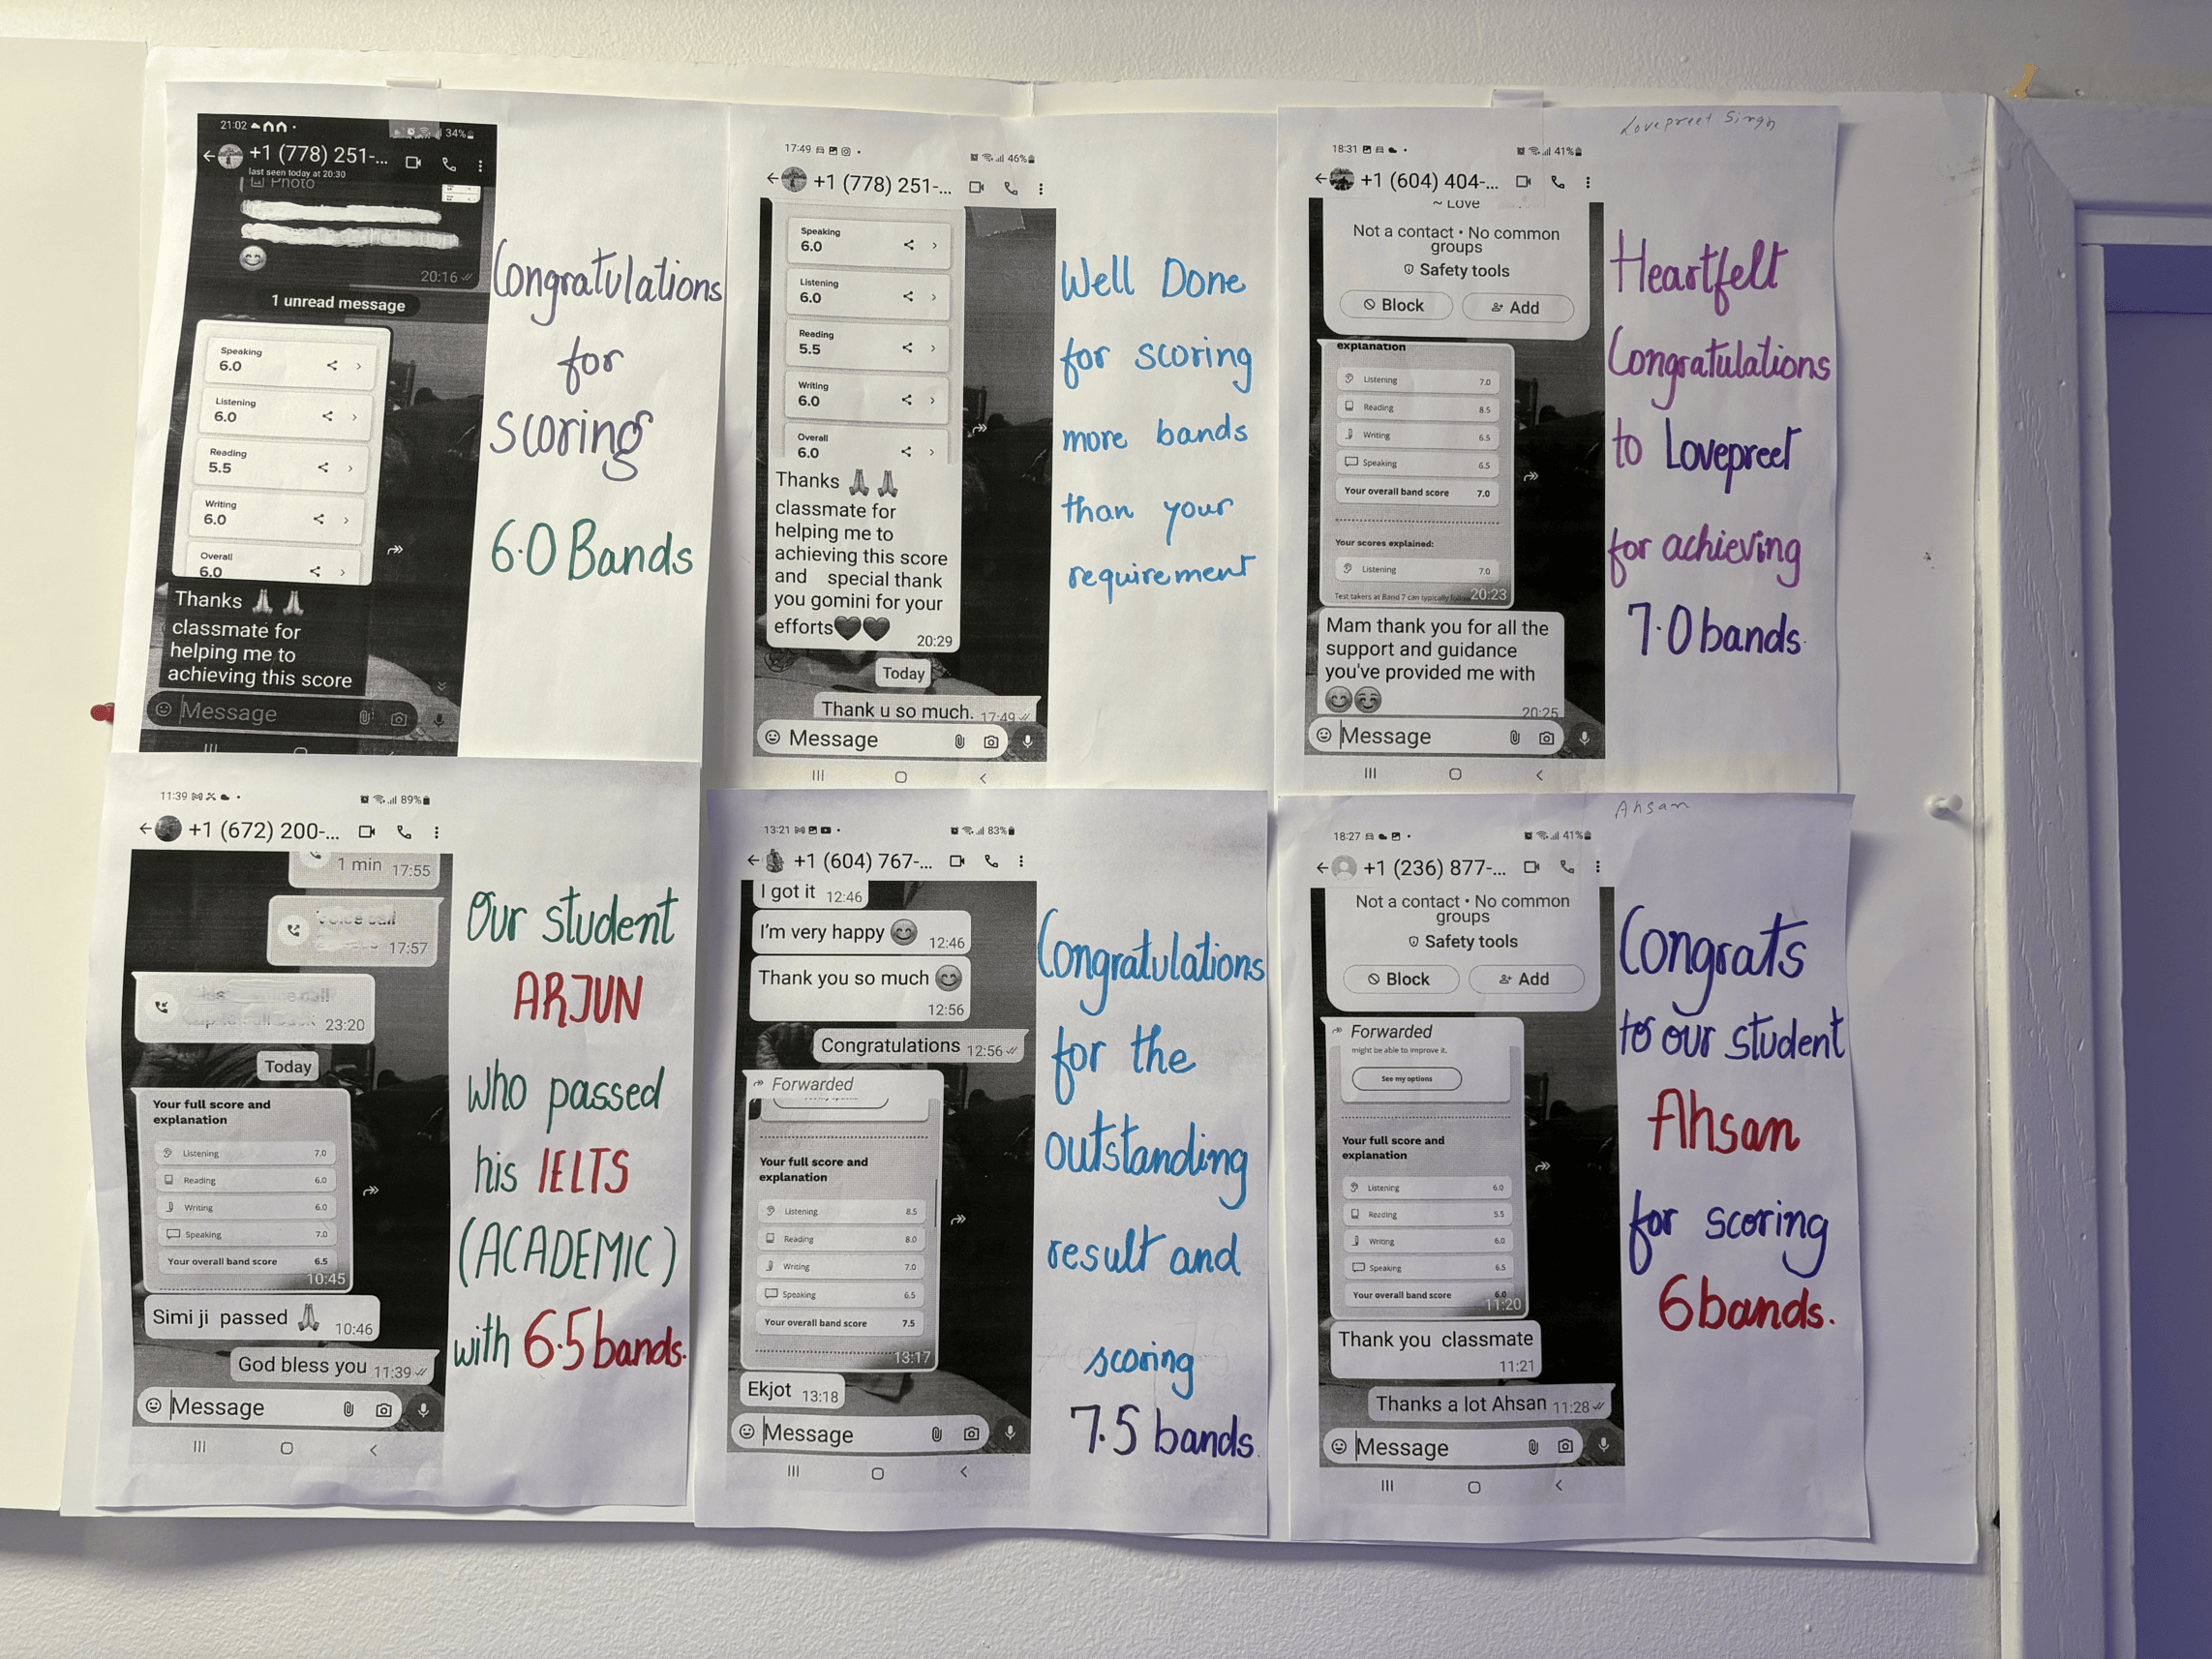 21:02
34%
+1 (778) 251-...
last seen today at 20:30
Photo
20:16
1 unread message
Speaking
6.0
Listening
6.0
Reading
5.5
Writing
6.0
Overall
6.0
Thanks 🙏 🙏
classmate for
helping me to
achieving this score
Message
Congratulations
for
scoring
6.0 Bands
17:49
46%
+1 (778) 251-...
Speaking
6.0
Listening
6.0
Reading
5.5
Writing
6.0
Overall
6.0
Thanks 🙏 🙏
classmate for
helping me to
achieving this score
and special thank
you gomini for your
efforts🖤🖤
20:29
Today
Thank u so much. 17:49
Message
Well Done
for scoring
more bands
than your
requirement
Lovepreet Singh
18:31
41%
+1 (604) 404-...
~ Love
Not a contact • No common
groups
Safety tools
Block
Add
explanation
Listening 7.0
Reading 8.5
Writing 6.5
Speaking 6.5
Your overall band score 7.0
Your scores explained:
Listening 7.0
Test takers at Band 7 can typically follow
20:23
Mam thank you for all the
support and guidance
you've provided me with
😊😊
20:25
Message
Heartfelt
Congratulations
to Lovepreet
for achieving
7.0 bands.
11:39
89%
+1 (672) 200-...
1 min 17:55
Voice call
17:57
call
23:20
Today
Your full score and
explanation
Listening 7.0
Reading 6.0
Writing 6.0
Speaking 7.0
Your overall band score 6.5
10:45
Simi ji passed 🙏 10:46
God bless you 11:39
Message
Our student
ARJUN
who passed
his IELTS
(ACADEMIC)
with 6.5 bands.
13:21
83%
+1 (604) 767-...
I got it 12:46
I'm very happy 😊 12:46
Thank you so much 😊
12:56
Congratulations 12:56
Forwarded
Your full score and
explanation
Listening 8.5
Reading 8.0
Writing 7.0
Speaking 6.5
Your overall band score 7.5
13:17
Ekjot 13:18
Message
Congratulations
for the
outstanding
result and
scoring
7.5 bands.
Ahsan
18:27
41%
+1 (236) 877-...
Not a contact • No common
groups
Safety tools
Block
Add
Forwarded
might be able to improve it.
See my options
Your full score and
explanation
Listening 6.0
Reading 5.5
Writing 6.0
Speaking 6.5
Your overall band score 6.0
11:20
Thank you classmate
11:21
Thanks a lot Ahsan 11:28
Message
Congrats
to our student
Ahsan
for scoring
6 bands.